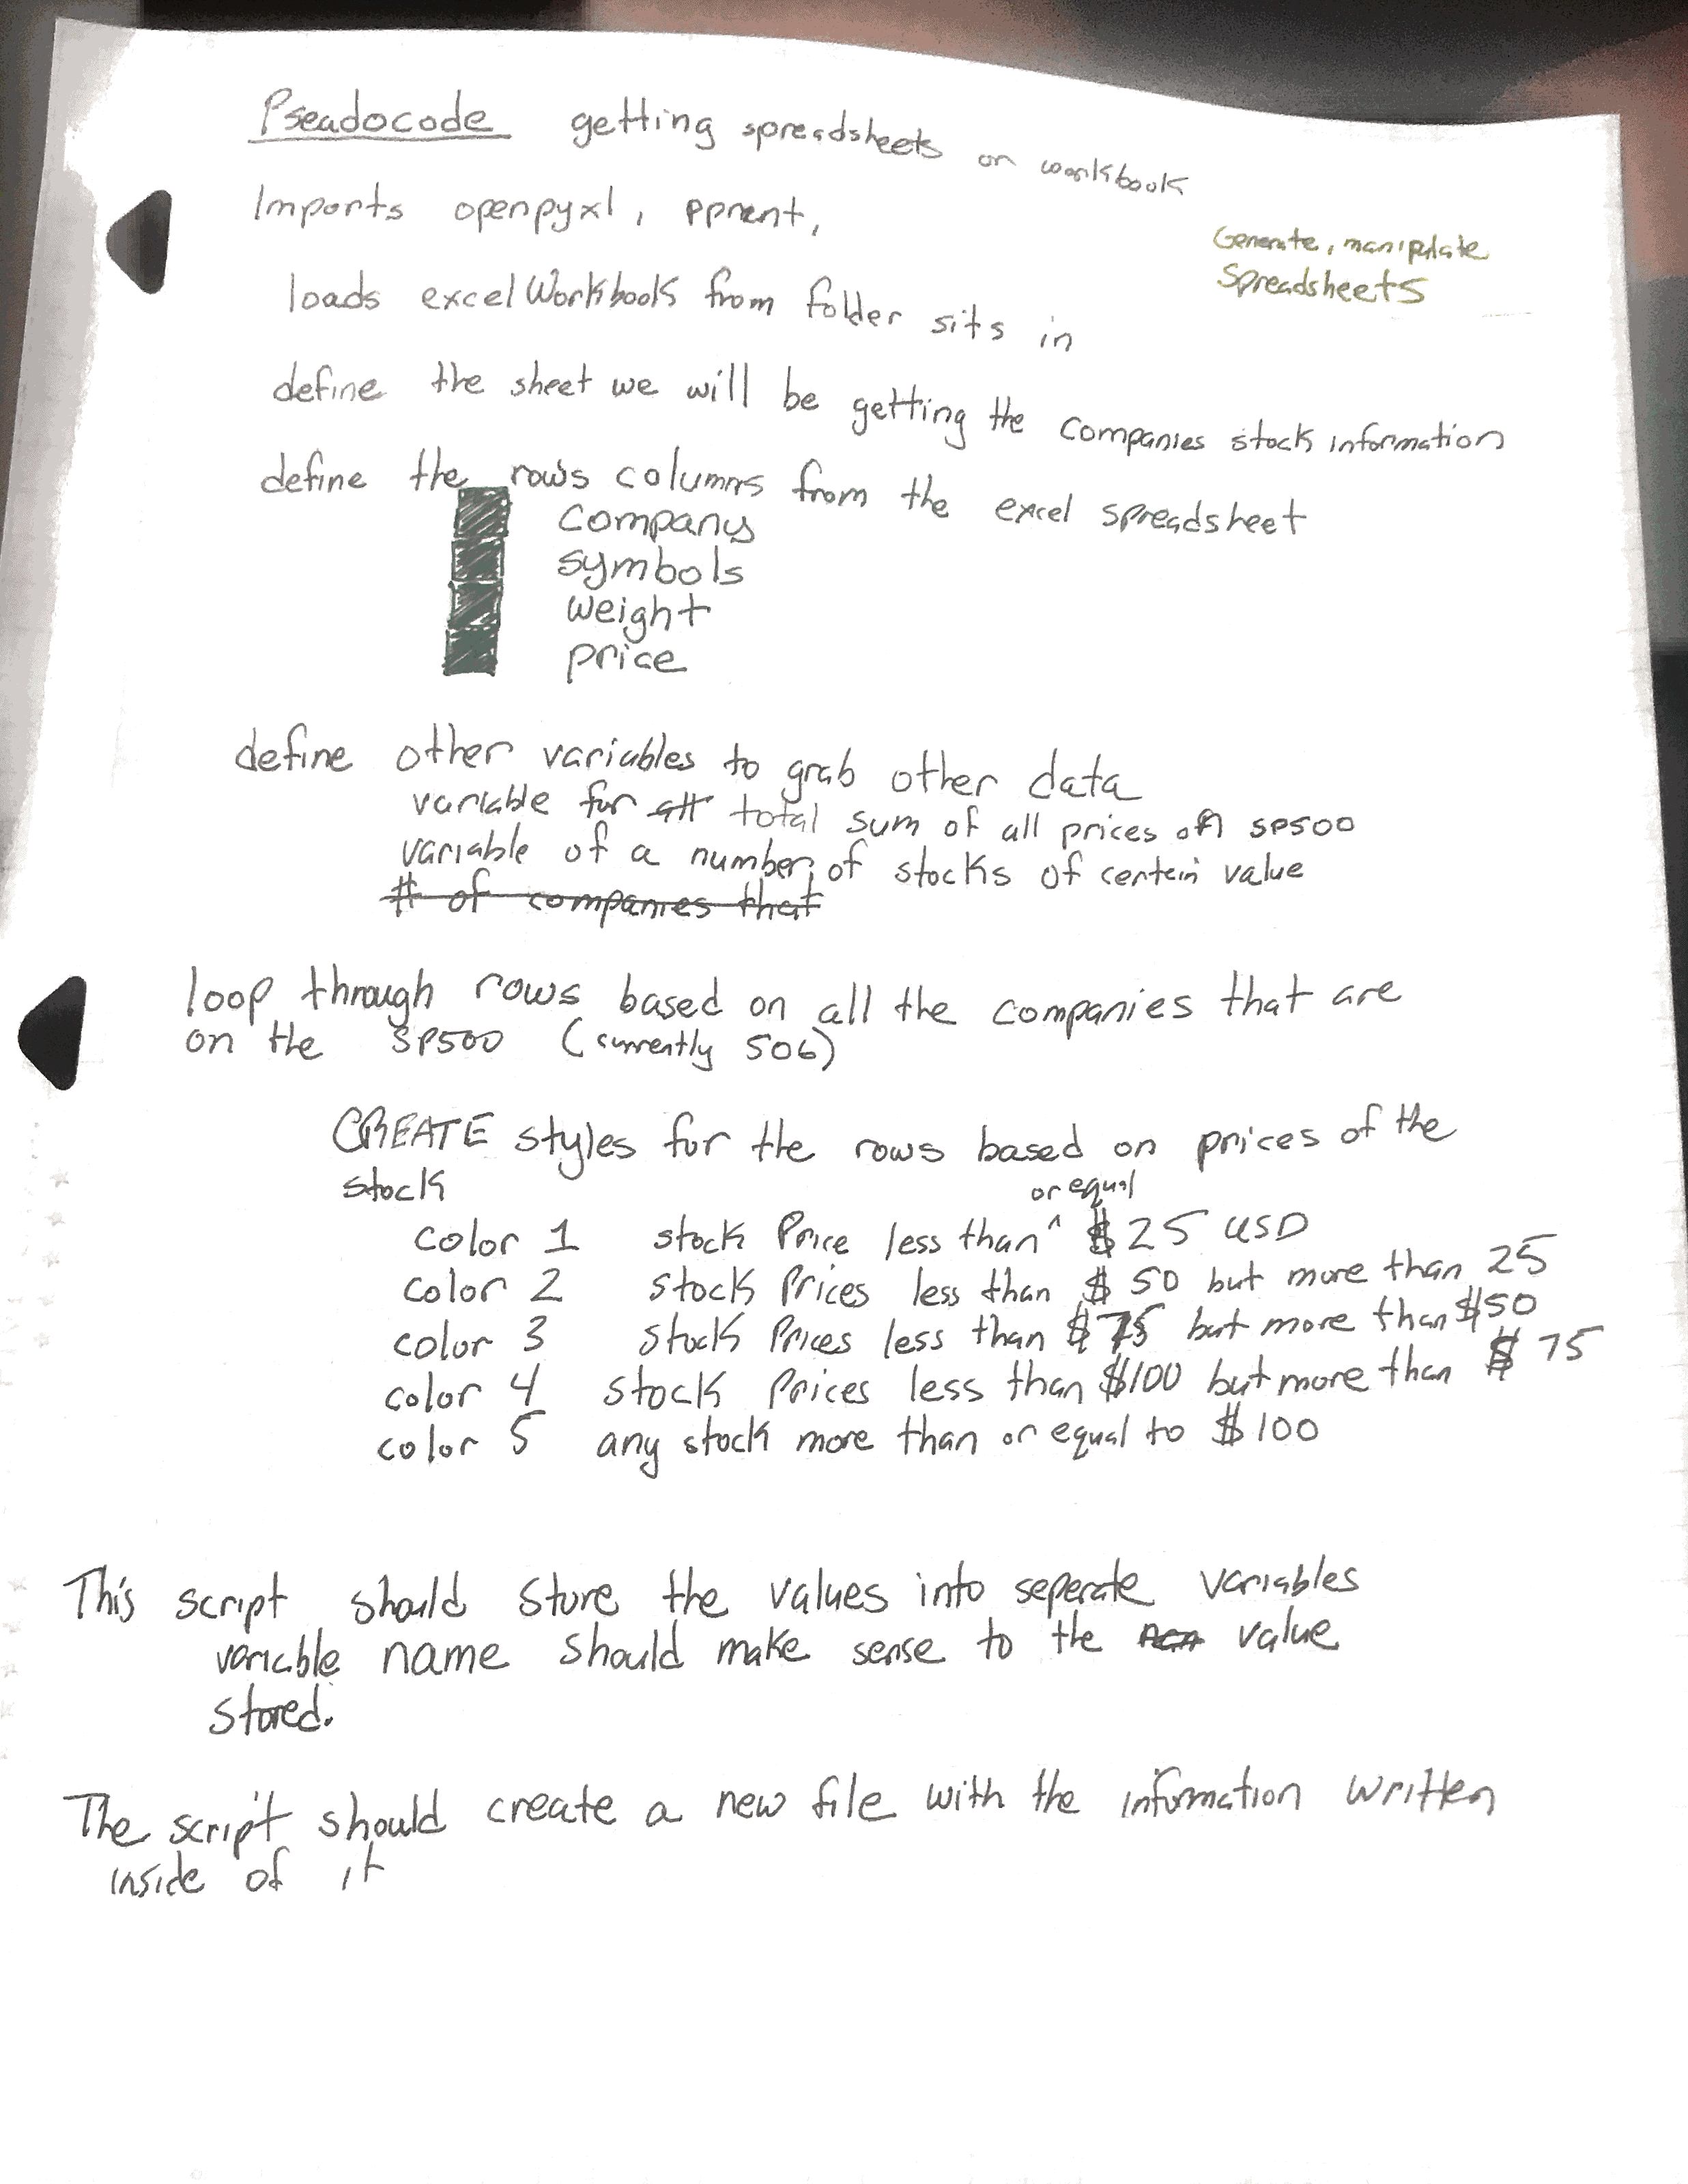 Pseadocode getting spreadsheets on workbook
Imports openpyxl, pprent,
Generate, manipulate
Spreadsheets
loads excel Workbook from folder sits in
define the sheet we will be getting the companies stock information
define the rows columns from the excel spreadsheet
company
symbols
weight
price
define other variables to grab other data
variable for all total sum of all prices of SP500
variable of a number of stocks of certein value
# of companies that
loop through rows based on all the companies that are
on the SP500 (currently 506)
CREATE styles for the rows based on prices of the
stock
or equal
color 1 stock Price less than ^ $25 USD
color 2 stock Prices less than $50 but more than 25
color 3 stock Prices less than $75 but more than $50
color 4 stock Prices less than $100 but more than $75
color 5 any stock more than or equal to $100
This script should store the values into seperate variables
variable name should make sense to the value
stored.
The script should create a new file with the information written
inside of it